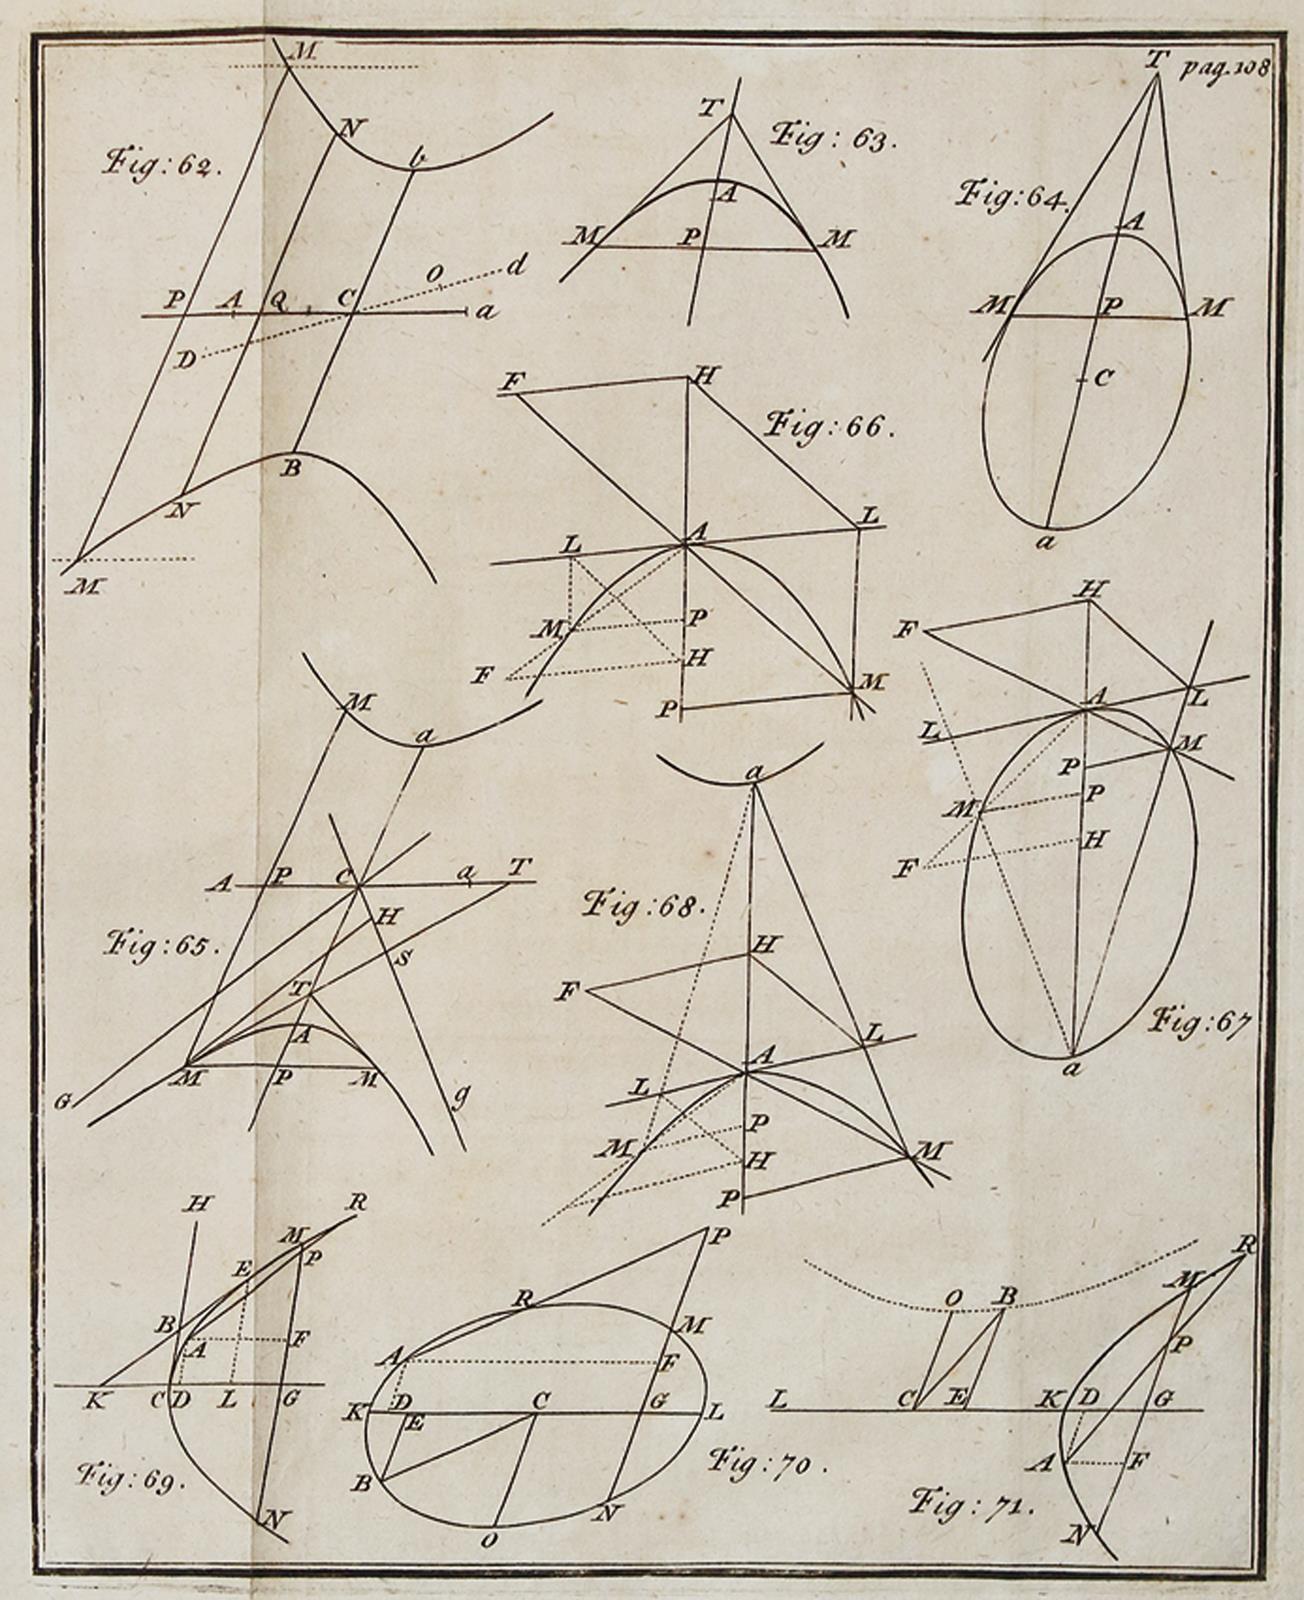 pag. 108
Fig: 62.
M
N
b
P A Q C O d
a
D
B
N
M
Fig: 63.
T
A
M P M
Fig: 64.
T
A
M P M
C
a
Fig: 66.
F H
L A L
M P
F H
P M
Fig: 65.
M a
A P C a T
H
S
T
A
M P M
G g
Fig: 67
H
F
A L
L
P M
M P
F H
a
Fig: 68.
a
H
F
A L
L
P
M H M
P
Fig: 69.
H R
M
E P
B
A F
K C D L G
N
Fig: 70.
P
R
M
A F
K D E C G L
B
N
O
Fig: 71.
R
M
O B
P
L C E K D G
A F
N